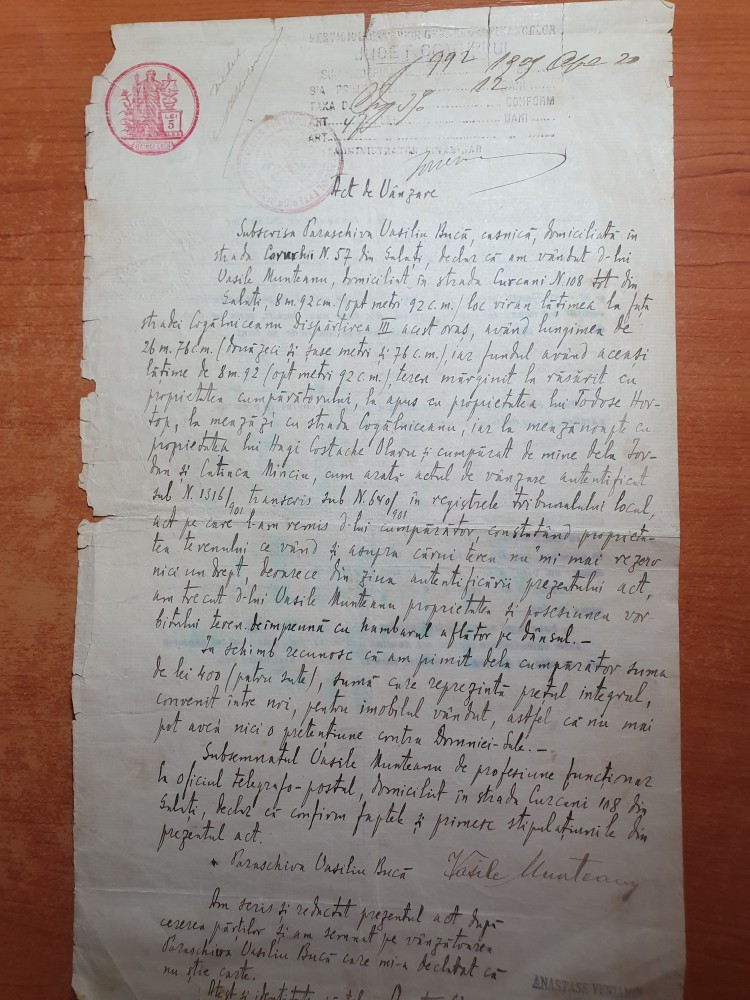 SERVICIUL
JUDEȚ COVURLUI
992 1809 Apr 20
S'A 12 BANI
TAXA D CONFORM
ART. 47 LEI BANI
ART.
ADMINISTRATOR FINANCIAR
LEI
5
Act de Vânzare
Subscrisa Paraschiva Vasiliu Bucă, casnică, domiciliată în
strada N. 57 din Galați, declar că am vândut d-lui
Vasile Munteanu, domiciliat în strada Curcani N. 108 din
Galați, 8 m. 92 cm. (opt metri 92 c.m.) loc viran lățimea la fața
stradei Cogălniceanu Dispărțirea III acest oraș, având lungimea de
26 m. 76 c.m. (douăzeci și șase metri și 76 c.m.), iar fundul având aceași
lățime de 8 m. 92 (opt metri 92 c.m.), teren mărginit la răsărit cu
proprietatea cumpărătorului, la apus cu proprietatea lui Todose Hor-
top, la meazăzi cu strada Cogălniceanu, iar la meazănoapte cu
proprietatea lui Hagi Costache Olaru și cumpărat de mine dela Ior-
dan și Catinca Minciu, cum arată actul de vânzare autentificat
sub N. 1316/901 transcris sub N. 640/901 în registrele tribunalului local,
act pe care l-am remis d-lui cumpărător, constatând proprieta-
tea terenului ce vând și asupra cărui teren nu'mi mai rezerv
nici un drept, deoarece din ziua autentificării prezentului act,
am trecut d-lui Vasile Munteanu proprietatea și posesiunea vor-
bitului teren. deimpreună cu hambarul aflător pe dânsul. –
In schimb recunosc că am primit dela cumpărător suma
de lei 400 (patru sute), sumă care reprezintă prețul integral,
convenit intre noi, pentru imobilul vândut, astfel că nu mai
pot avea nici o pretențiune contra Domniei-Sale. –
Subsemnatul Vasile Munteanu de profesiune funcționar
la oficiul telegrafo-postal, domiciliat în strada Curcani 108 din
Galați, declar că confirm faptele și primesc stipulațiunile din
prezentul act.
+ Paraschiva Vasiliu Bucă Vasile Munteanu
Am scris și redactat prezentul act după
cererea părților și am semnat pe vânzătoarea
Paraschiva Vasiliu Bucă care mi-a declarat că
nu știe carte.
ANASTASE VENIAMIN
Atest și identitatea